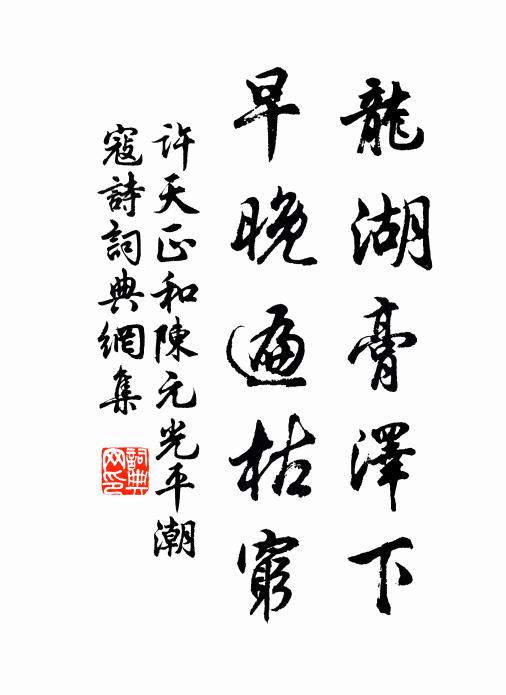 龍湖膏澤下
早晚遍枯窮
許天正和陳元光平潮
寇詩詞典網集
詞典网印